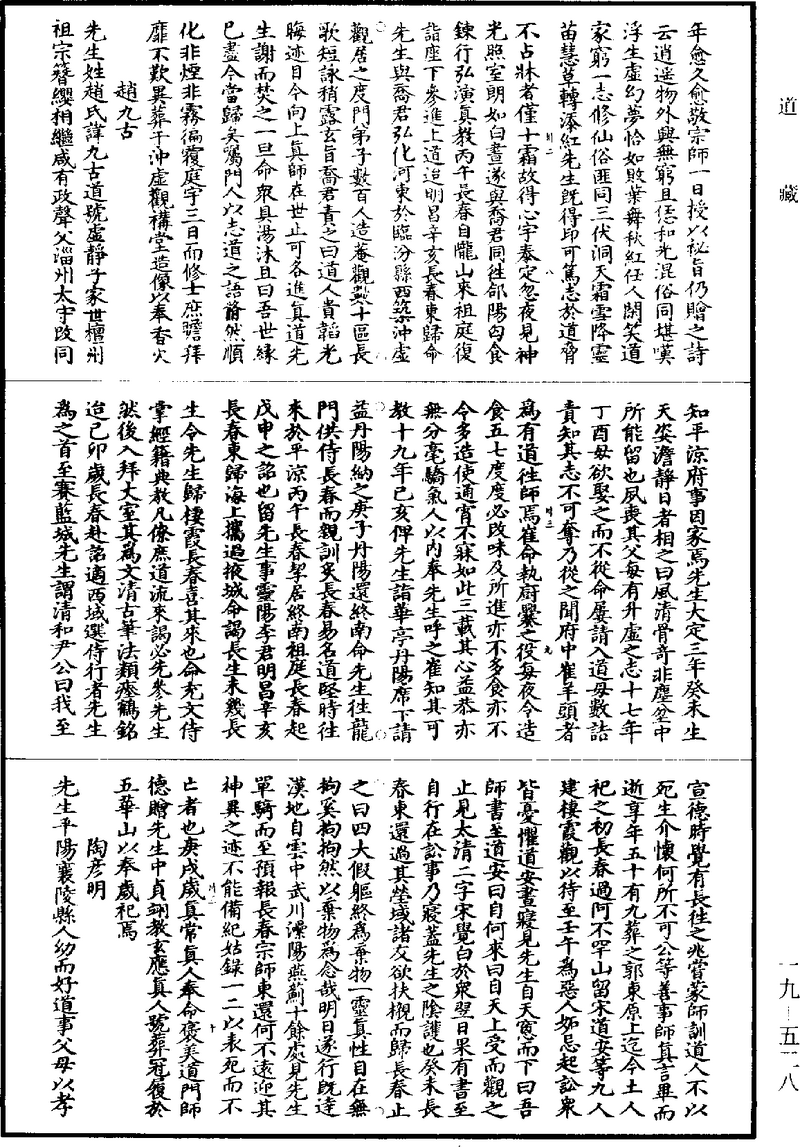 道藏
年愈久愈敬宗師一日授以祕旨仍贈之詩
云逍遥物外興無窮且恁和光混俗同堪嘆
浮生虛幻夢恰如敗葉舞秋紅任人閑笑道
家窮一志修仙俗匪同三伏洞天霜雪降靈
苗慧草轉添紅先生旣得印可篤志於道脅
不占牀者僅十霜故得心宇泰定忽夜見神
光照室朗如白晝遂與喬君同徃郃陽匃食
鍊行弘演真教丙午長春自隴山來祖庭復
詣座下參進上道迨明昌辛亥長春東歸命
先生與喬君弘化河東於臨汾縣西築沖虛
觀居之度門弟子數百人造菴觀數十區長
歌短詠稍露玄旨喬君責之曰道人貴韜光
晦迹目今向上真師在世止可各進真道先
生謝而焚之一旦命衆具湯沐且曰吾世緣
已盡今當歸矣囑門人以志道之語翛然順
化非煙非霧徧覆庭宇三日而修士庶瞻拜
靡不歎異葬于沖虛觀構堂造像以奉香火
趙九古
先生姓趙氏諱九古道號虛靜子家世檀州
祖宗簪纓相繼咸有政聲父淄州太守改同
知平涼府事因家焉先生大定三年癸未生
天姿澹靜日者相之曰風清骨奇非塵坌中
所能留也夙喪其父每有升虛之志十七年
丁酉母欲娶之而不從命屢請入道母數詰
責知其志不可奪乃從之聞府中崔羊頭者
爲有道徃師焉崔命執厨爨之役每夜令造
食五七度度必改味及所進亦不多食亦不
令多造使通宵不寐如此三載其心益恭亦
無分毫驕氣人以内奉先生呼之崔知其可
教十九年己亥俾先生詣華亭丹陽席下請
益丹陽納之庚子丹陽還終南命先生徃龍
門供侍長春而親訓炙長春易名道堅時徃
來於平涼丙午長春挈居終南祖庭長春起
戊申之詔也留先生事靈陽李君明昌辛亥
長春東歸海上攜過掖城命謁長生未幾長
生令先生歸棲霞長春喜其來也命充文侍
掌經籍典教凡僚庶道流來謁必先參先生
然後入拜丈室其爲文清古筆法類瘞鶴銘
迨己卯歲長春赴詔適西域選侍行者先生
爲之首至賽藍城先生謂清和尹公曰我至
宣德時覺有長徃之兆嘗蒙師訓道人不以
死生介懷何所不可公等善事師真言畢而
逝享年五十有九葬之郭東原上迄今土人
祀之初長春過阿不罕山留宋道安等九人
建棲霞觀以待至壬午爲惡人妬忌起訟衆
皆憂懼道安晝寢見先生自天窻而下曰吾
師書至道安曰自何來曰自天上受而觀之
止見太清二字宋覺白於衆翌日果有書至
自行在訟事乃寢蓋先生之陰護也癸未長
春東還過其塋域諸友欲扶櫬而歸長春止
之曰四大假軀終爲棄物一靈真性自在無
拘奚拘拘然以棄物爲念哉明日遂行旣達
漢地自雲中武川灤陽燕薊十餘處見先生
單騎而至預報長春宗師東還何不遠迎其
神異之迹不能備紀姑録一二以表死而不
亡者也庚戌歲真常真人奉命襃美道門師
德贈先生中貞翊教玄應真人號葬冠履於
五華山以奉歲祀焉
陶彦明
先生平陽襄陵縣人幼而好道事父母以孝
一九—五二八